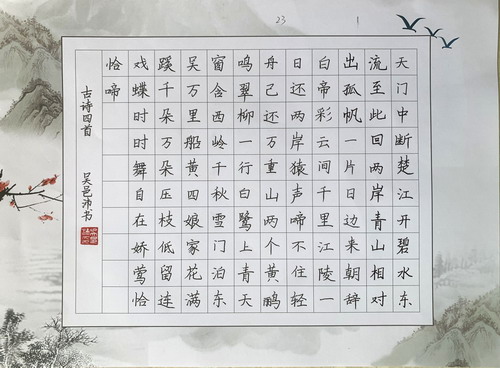 23
1
天门中断楚江开碧水东
流至此回两岸青山相对
出孤帆一片日边来朝辞
白帝彩云间千里江陵一
日还两岸猿声啼不住轻
舟已过万重山两个黄鹂
鸣翠柳一行白鹭上青天
窗含西岭千秋雪门泊东
吴万里船黄四娘家花满
蹊千朵万朵压枝低留连
戏蝶时时舞自在娇莺恰
恰啼
古诗四首
吴邑沛书